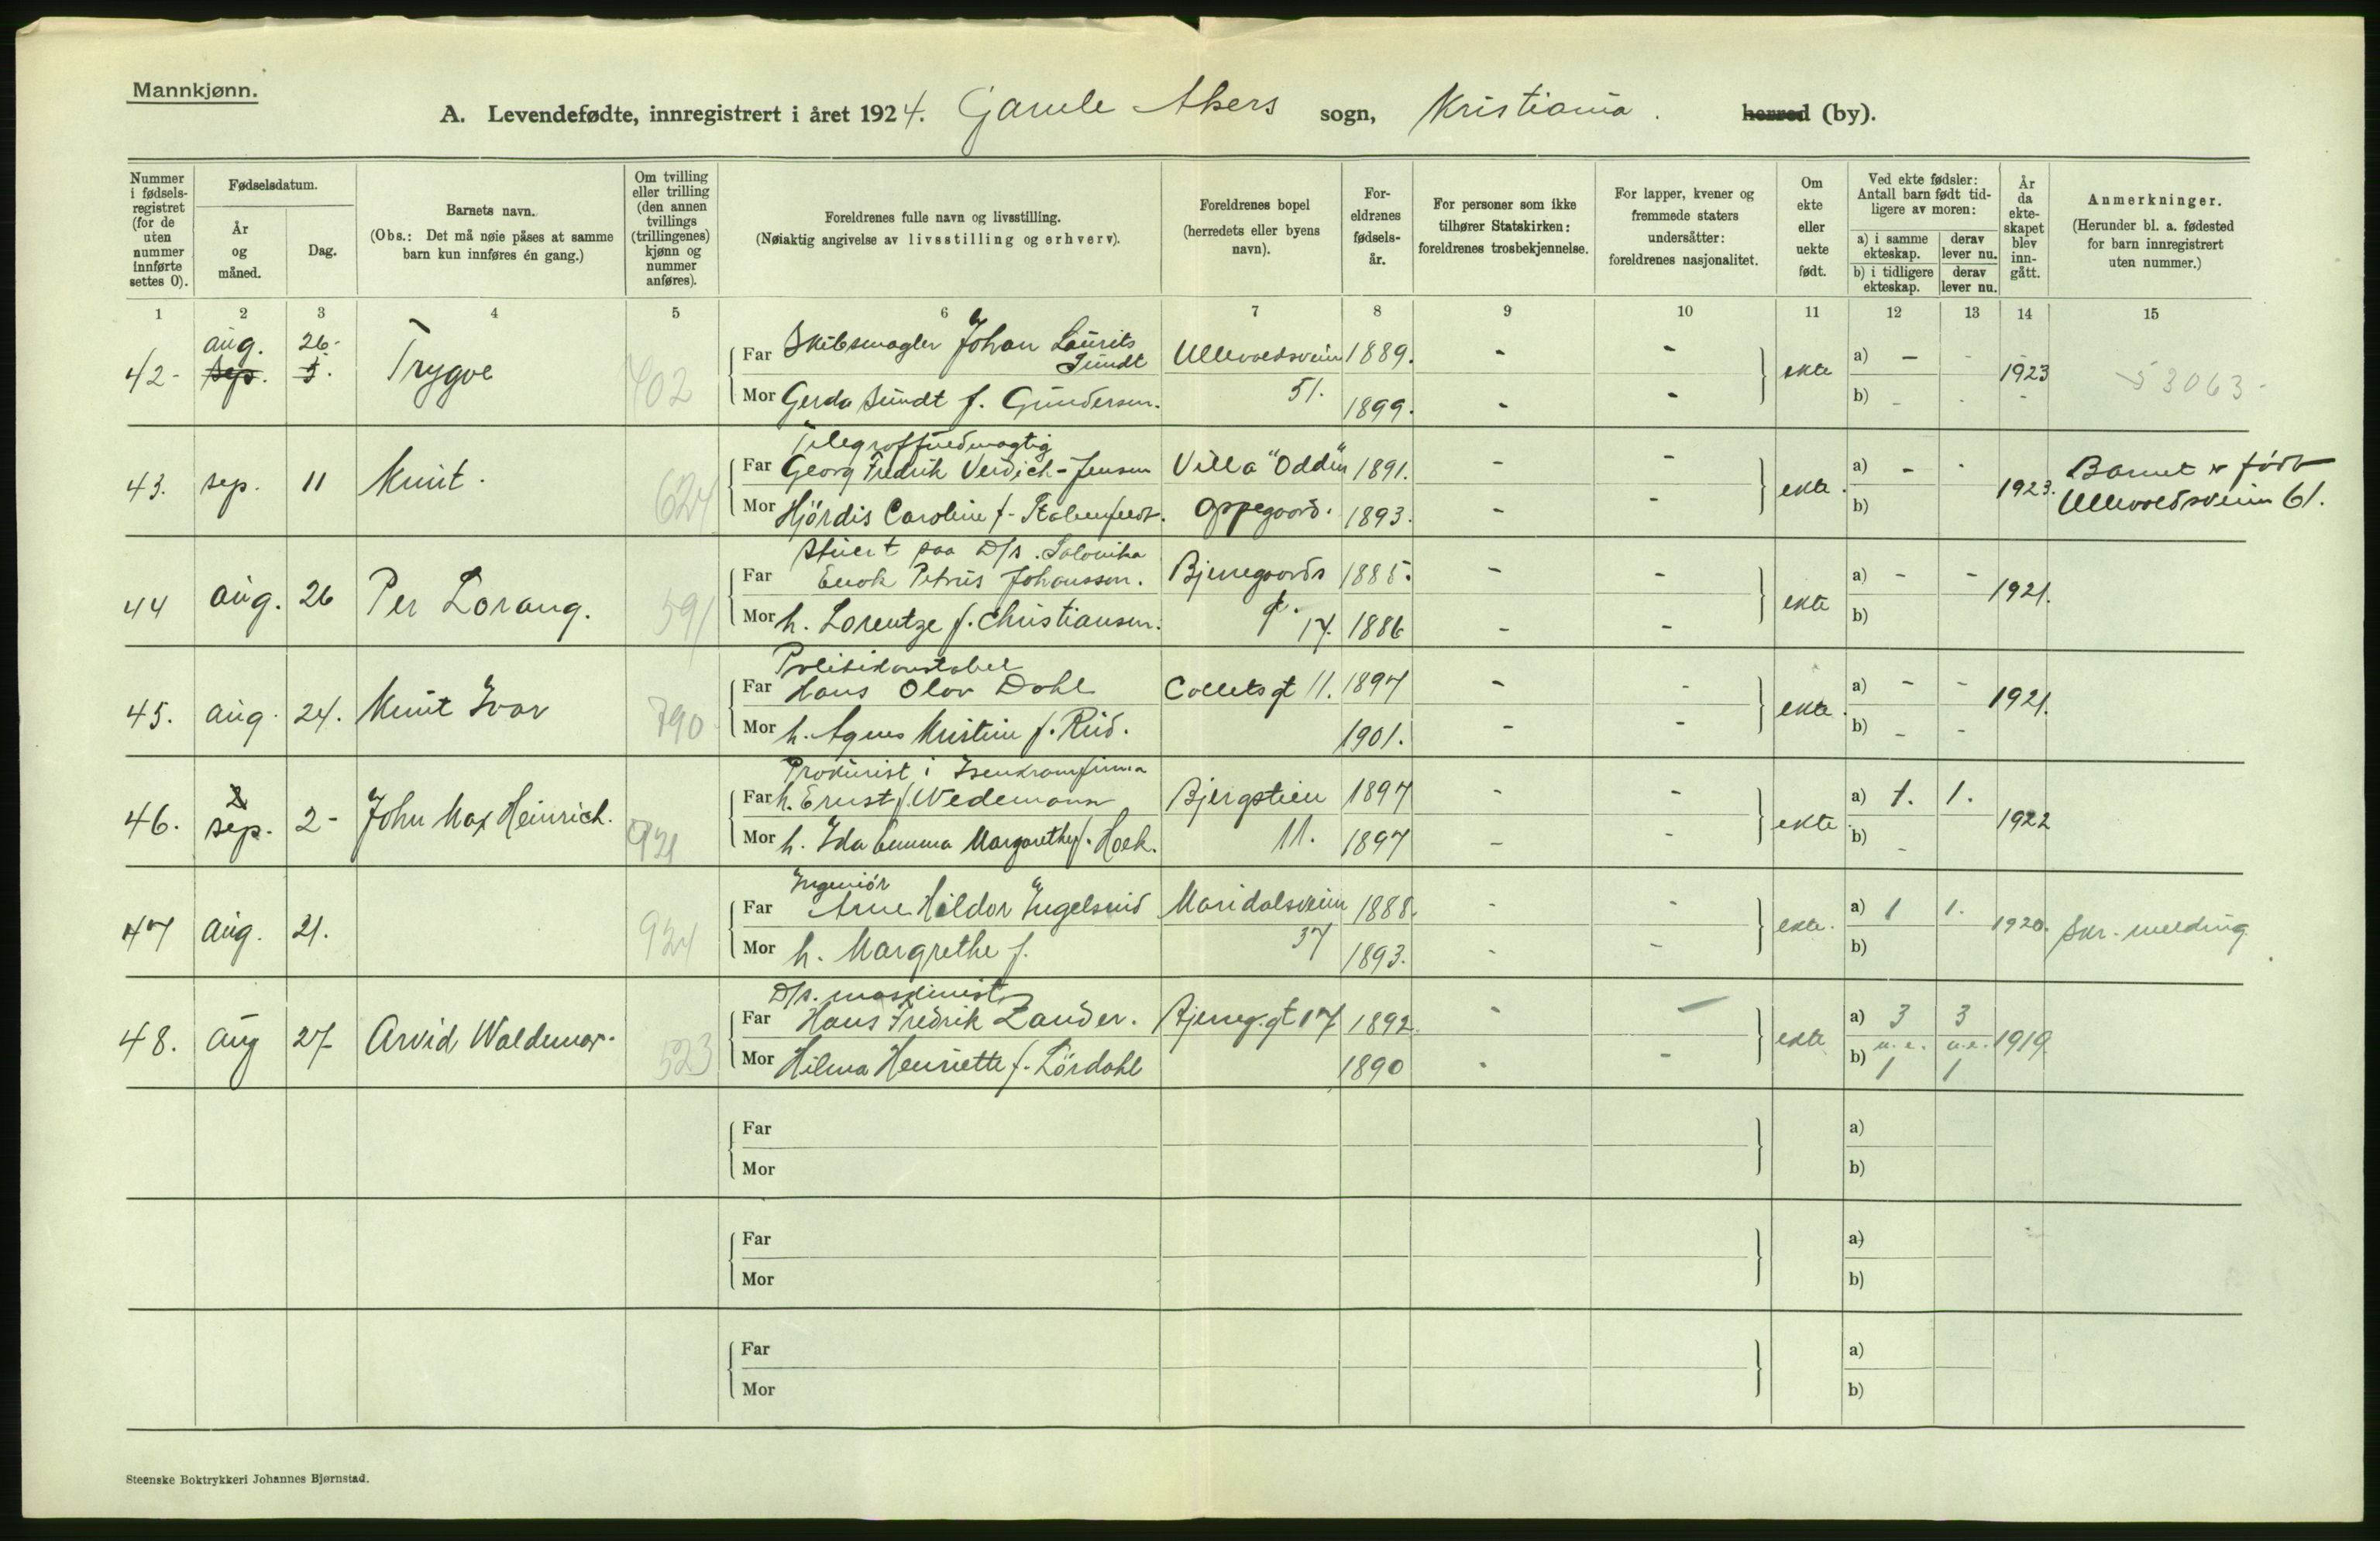 Mannkjønn.
A. Levendefødte, innregistrert i året 1924. Gamle Akers sogn, Kristiania. herred (by).
Nummer i fødselsregistret (for de uten nummer innførte settes 0).
Fødselsdatum.
År og måned.
Dag.
Barnets navn.
(Obs.: Det må nøie påses at samme barn kun innføres én gang.)
Om tvilling eller trilling (den annen tvillings (trillingenes) kjønn og nummer anføres).
Foreldrenes fulle navn og livsstilling.
(Nøiaktig angivelse av livsstilling og erhverv).
Foreldrenes bopel (herredets eller byens navn).
Foreldrenes fødselsår.
For personer som ikke tilhører Statskirken: foreldrenes trosbekjennelse.
For lapper, kvener og fremmede staters undersåtter: foreldrenes nasjonalitet.
Om ekte eller uekte født.
Ved ekte fødsler: Antall barn født tidligere av moren:
a) i samme ekteskap. derav lever nu.
b) i tidligere ekteskap. derav lever nu.
År da ekteskapet blev inngått.
Anmerkninger.
(Herunder bl. a. fødested for barn innregistrert uten nummer.)
1 2 3 4 5 6 7 8 9 10 11 12 13 14 15
42- aug. 26- sep. 5. Trygve 402
Far Skibsmægler Johan Laurits Sundt Ullevoldsveien 1889. - -
Mor Gerda Sundt f. Gundersen. 51. 1899. - -
ekte a) - - b) - - 1923 53063-
43. sep. 11 Knut. 624
Telegraffuldmægtig
Far Georg Fredrik Verdich-Jensen Villa "Oddin" 1891. - -
Mor Hjørdis Caroline f. Oppegaard. 1893. - -
ekte. a) - - b) 1923. Barnet er født Ullevoldsveien 61.
44 aug. 26 Per Lorang. 591
Stuert paa D/s. Salonika
Far Enok Petrus Johansson. Bjerregaards 1885. - -
Mor h. Lorentze f. Christiansen. gt. 17. 1886 - -
ekte a) - - b) 1921.
45. aug. 24. Knut Ivar 790
Politikonstabel
Far Hans Olav Dahl Colletsgt 11. 1897 - -
Mor h. Agnes Kristine f. Rud. 1901. - -
ekte. a) - - b) - - 1921.
46. sep. 2- John Max Heinrich. 921
Prokurist i Isenkramfirma
Far h. Ernst f. Wedemann Bjergstien 1897 - -
Mor h. Ida Emma Margarethe f. Hoek. 11. 1897 - -
ekte a) 1. 1. b) - 1922
47 aug. 21. 924
Ingeniør
Far Arne Haldor Engelsrud Maridalsveien 1888. - -
Mor h. Margrethe f. 37 1893. - -
ekte. a) 1 1. b) 1920. Skr. melding
48. aug 27 Arvid Waldemar. 523
D/s. maskinist
Far Hans Fredrik Zander. Bjerreg.gt 17 1892. - -
Mor Hilma Henriette f. Lørdahl 1890 - -
ekte a) 3 3 b) u.e. 1 u.e. 1 1919
Far a)
Mor b)
Far a)
Mor b)
Far a)
Mor b)
Steenske Boktrykkeri Johannes Bjørnstad.